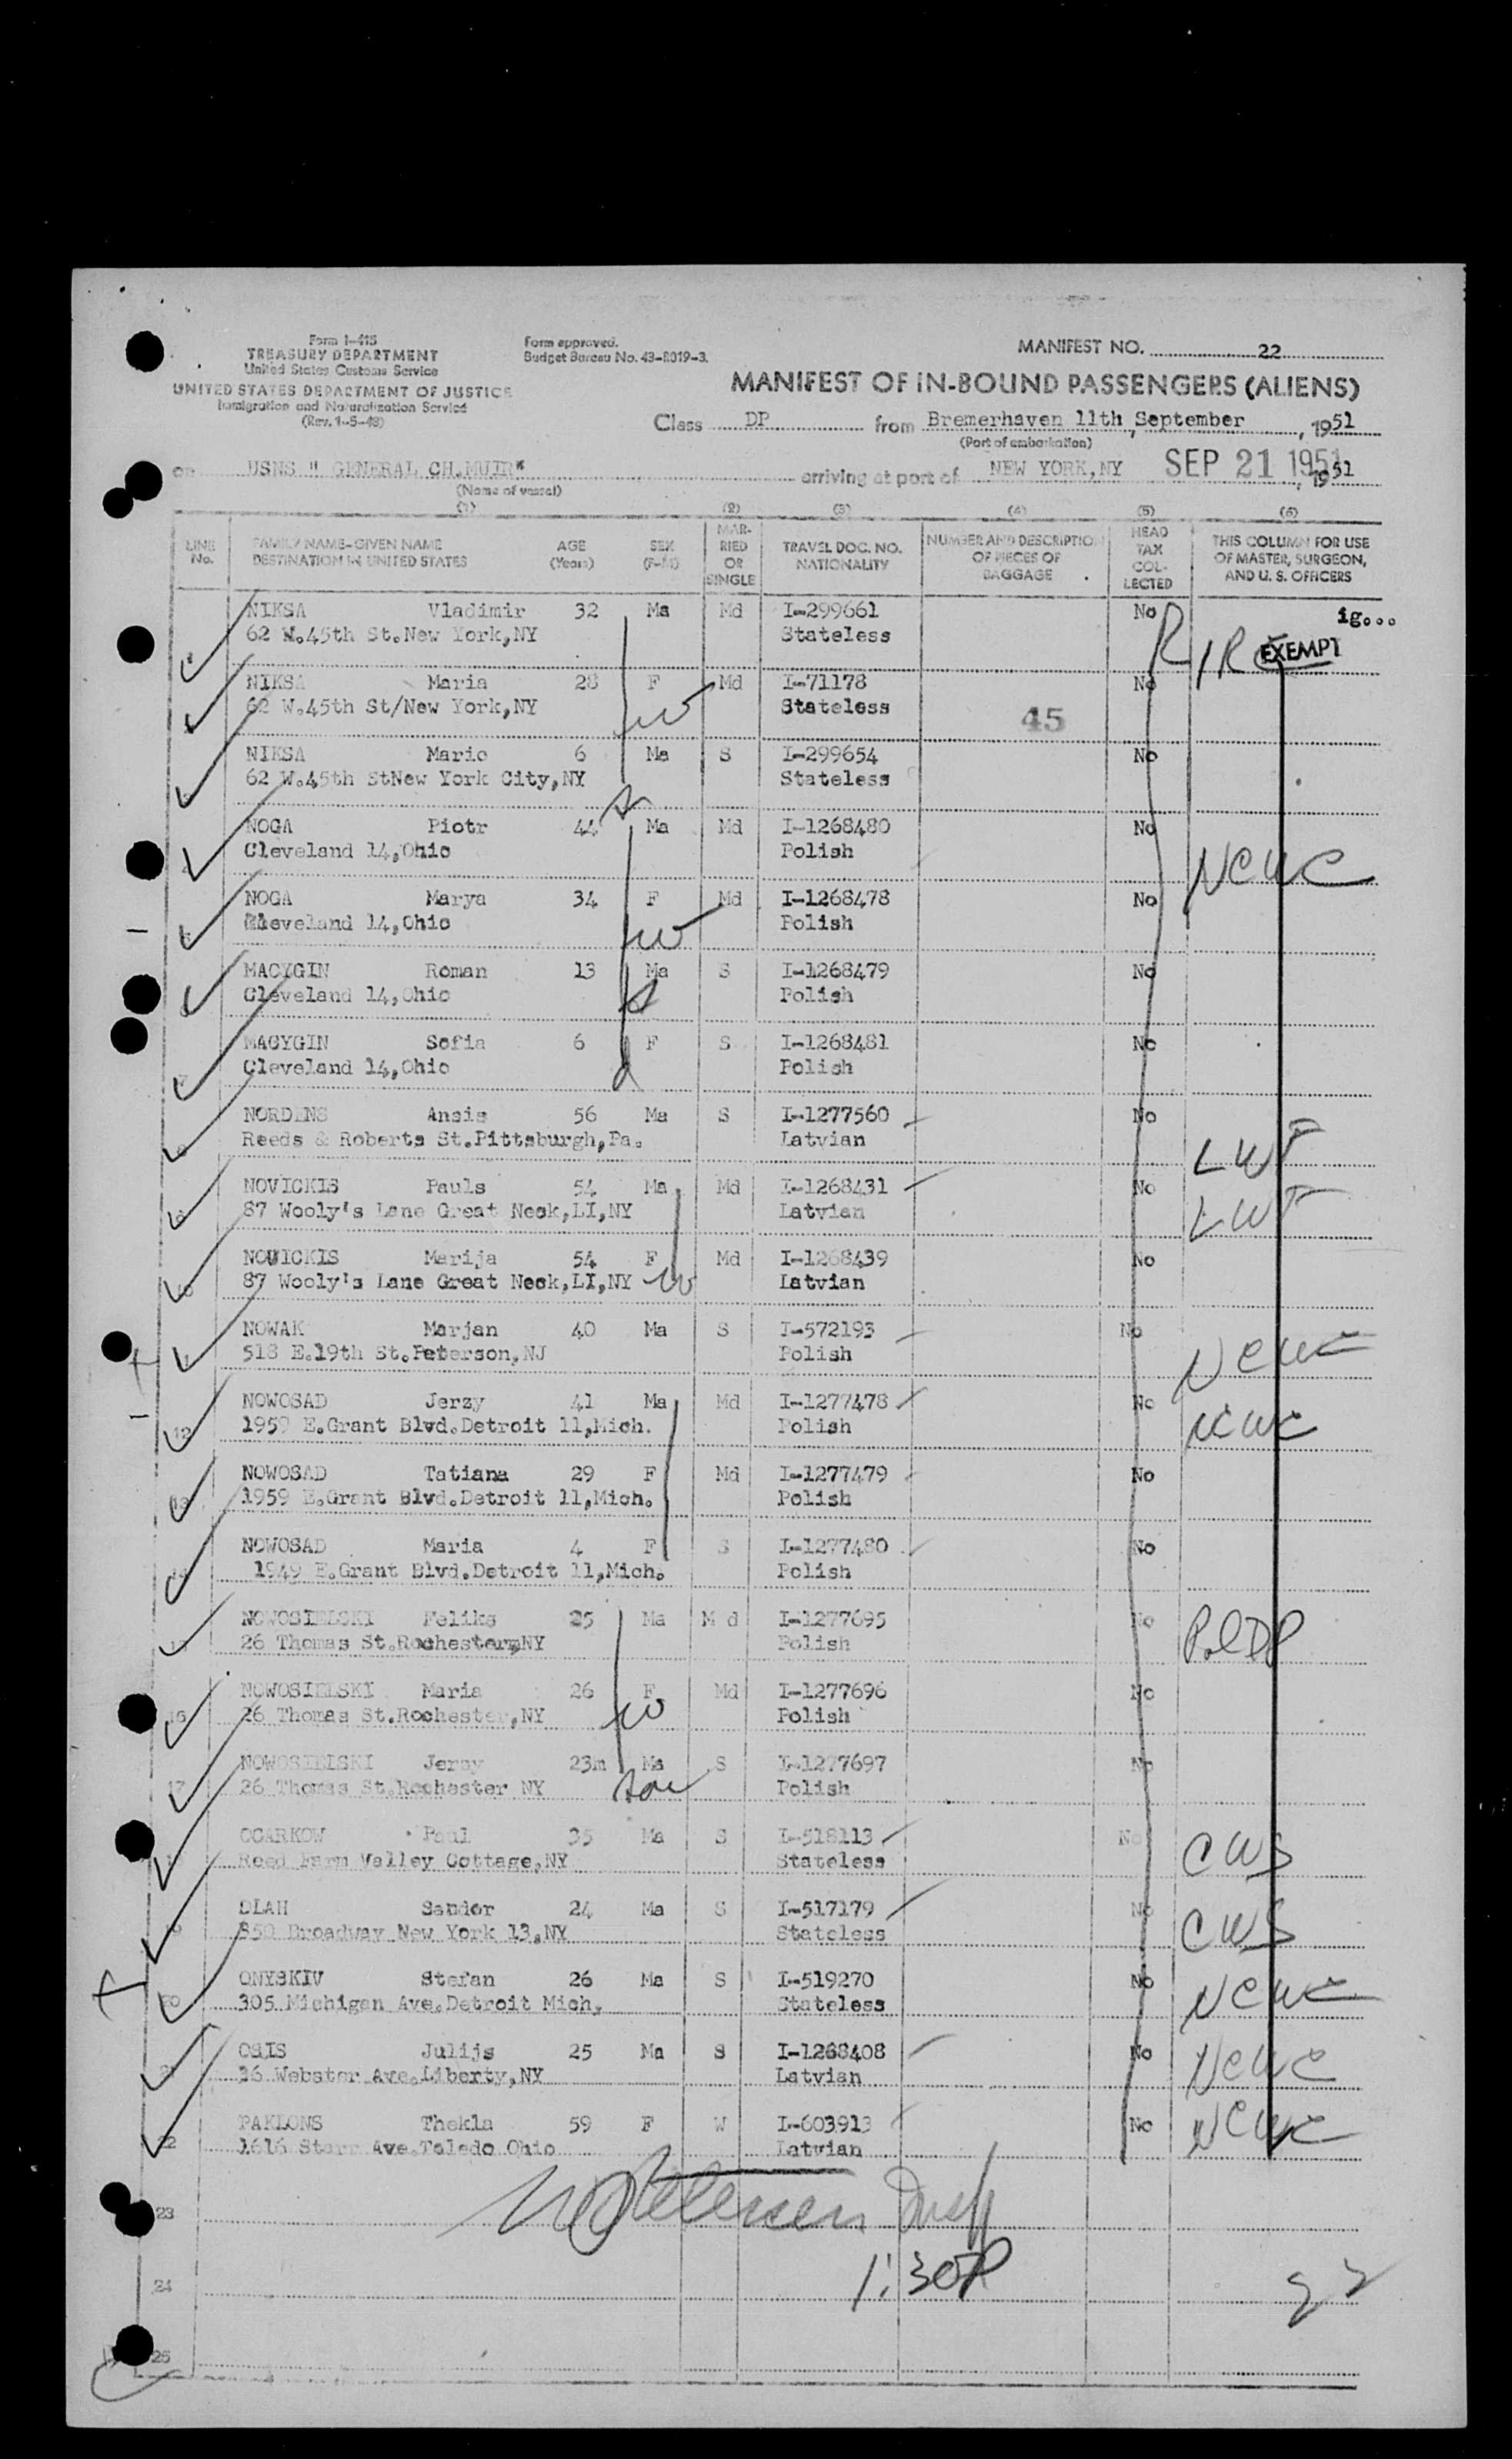 Form I-415
TREASURY DEPARTMENT
United States Customs Service
UNITED STATES DEPARTMENT OF JUSTICE
Immigration and Naturalization Service
(Rev. 1-5-48)
Form approved.
Budget Bureau No. 43-R019-3.
MANIFEST NO. 22
MANIFEST OF IN-BOUND PASSENGERS (ALIENS)
Class DP from Bremerhaven 11th, September, 1951
(Port of embarkation)
on USNS " GENERAL CH.MUIR" arriving at port of NEW YORK,NY SEP 21 1951, 1951
(Name of vessel)
(1) (2) (3) (4) (5) (6)
LINE No. FAMILY NAME-GIVEN NAME DESTINATION IN UNITED STATES AGE (Years) SEX (F-M) MARRIED OR SINGLE TRAVEL DOC. NO. NATIONALITY NUMBER AND DESCRIPTION OF PIECES OF BAGGAGE HEAD TAX COLLECTED THIS COLUMN FOR USE OF MASTER, SURGEON, AND U. S. OFFICERS
NIKSA Vladimir 32 Ma Md I-299661 No ig...
62 W.45th St.New York,NY Stateless EXEMPT
NIKSA Maria 28 F Md I-71178 No
62 W.45th St/New York,NY w Stateless 45
NIKSA Mario 6 Ma S I-299654 No
62 W.45th StNew York City,NY Stateless
s
NOGA Piotr 44 Ma Md I-1268480 No
Cleveland 14,Ohio Polish NCWC
NOGA Marya 34 F Md I-1268478 No
Cleveland 14,Ohio w Polish
MACYGIN Roman 13 Ma S I-1268479 No
Cleveland 14,Ohio s Polish
MACYGIN Sofia 6 F S I-1268481 No
Cleveland 14,Ohio d Polish
NORDENS Ansis 56 Ma S I-1277560 No
Reeds & Roberts St.Pittsburgh,Pa. Latvian LWF
NOVICKIS Pauls 54 Ma Md I-1268431 No
87 Wooly's Lane Great Neck,LI,NY Latvian LWF
NOVICKIS Marija 54 F Md I-1268439 No
87 Wooly's Lane Great Neck,LI,NY w Latvian
NOWAK Marjan 40 Ma S I-572193 No
518 E.19th St.Peterson,NJ Polish NCWC
NOWOSAD Jerzy 41 Ma Md I-1277478 No
12 1959 E.Grant Blvd.Detroit 11,Mich. Polish NCWC
NOWOSAD Tatiana 29 F Md I-1277479 No
13 1959 E.Grant Blvd.Detroit 11,Mich. Polish
NOWOSAD Maria 4 F S I-1277480 No
14 1949 E.Grant Blvd.Detroit 11,Mich. Polish
NOWOSIELSKI Feliks 25 Ma M d I-1277695 No
15 26 Thomas St.Rochester,NY Polish PolDP
NOWOSIELSKI Maria 26 F Md I-1277696 No
16 26 Thomas St.Rochester,NY w Polish
NOWOSIELSKI Jerzy 23m Ma S I-1277697 No
17 26 Thomas St.Rochester NY son Polish
OCARKOW Paul 35 Ma S I-518113 No
Reed Farm Valley Cottage,NY Stateless CWS
OLAH Sandor 24 Ma S I-517179 No
850 Broadway New York 13,NY Stateless CWS
ONYSKIV Stefan 26 Ma S I-519270 No
20 305 Michigan Ave.Detroit Mich, Stateless NCWC
OSIS Julijs 25 Ma S I-1268408 No
21 36 Webster Ave.Liberty,NY Latvian NCWC
PAKLONS Thekla 59 F W I-603913 No
22 1616 Starr Ave.Toledo Ohio Latvian NCWC
23
1:30P
24 22
25